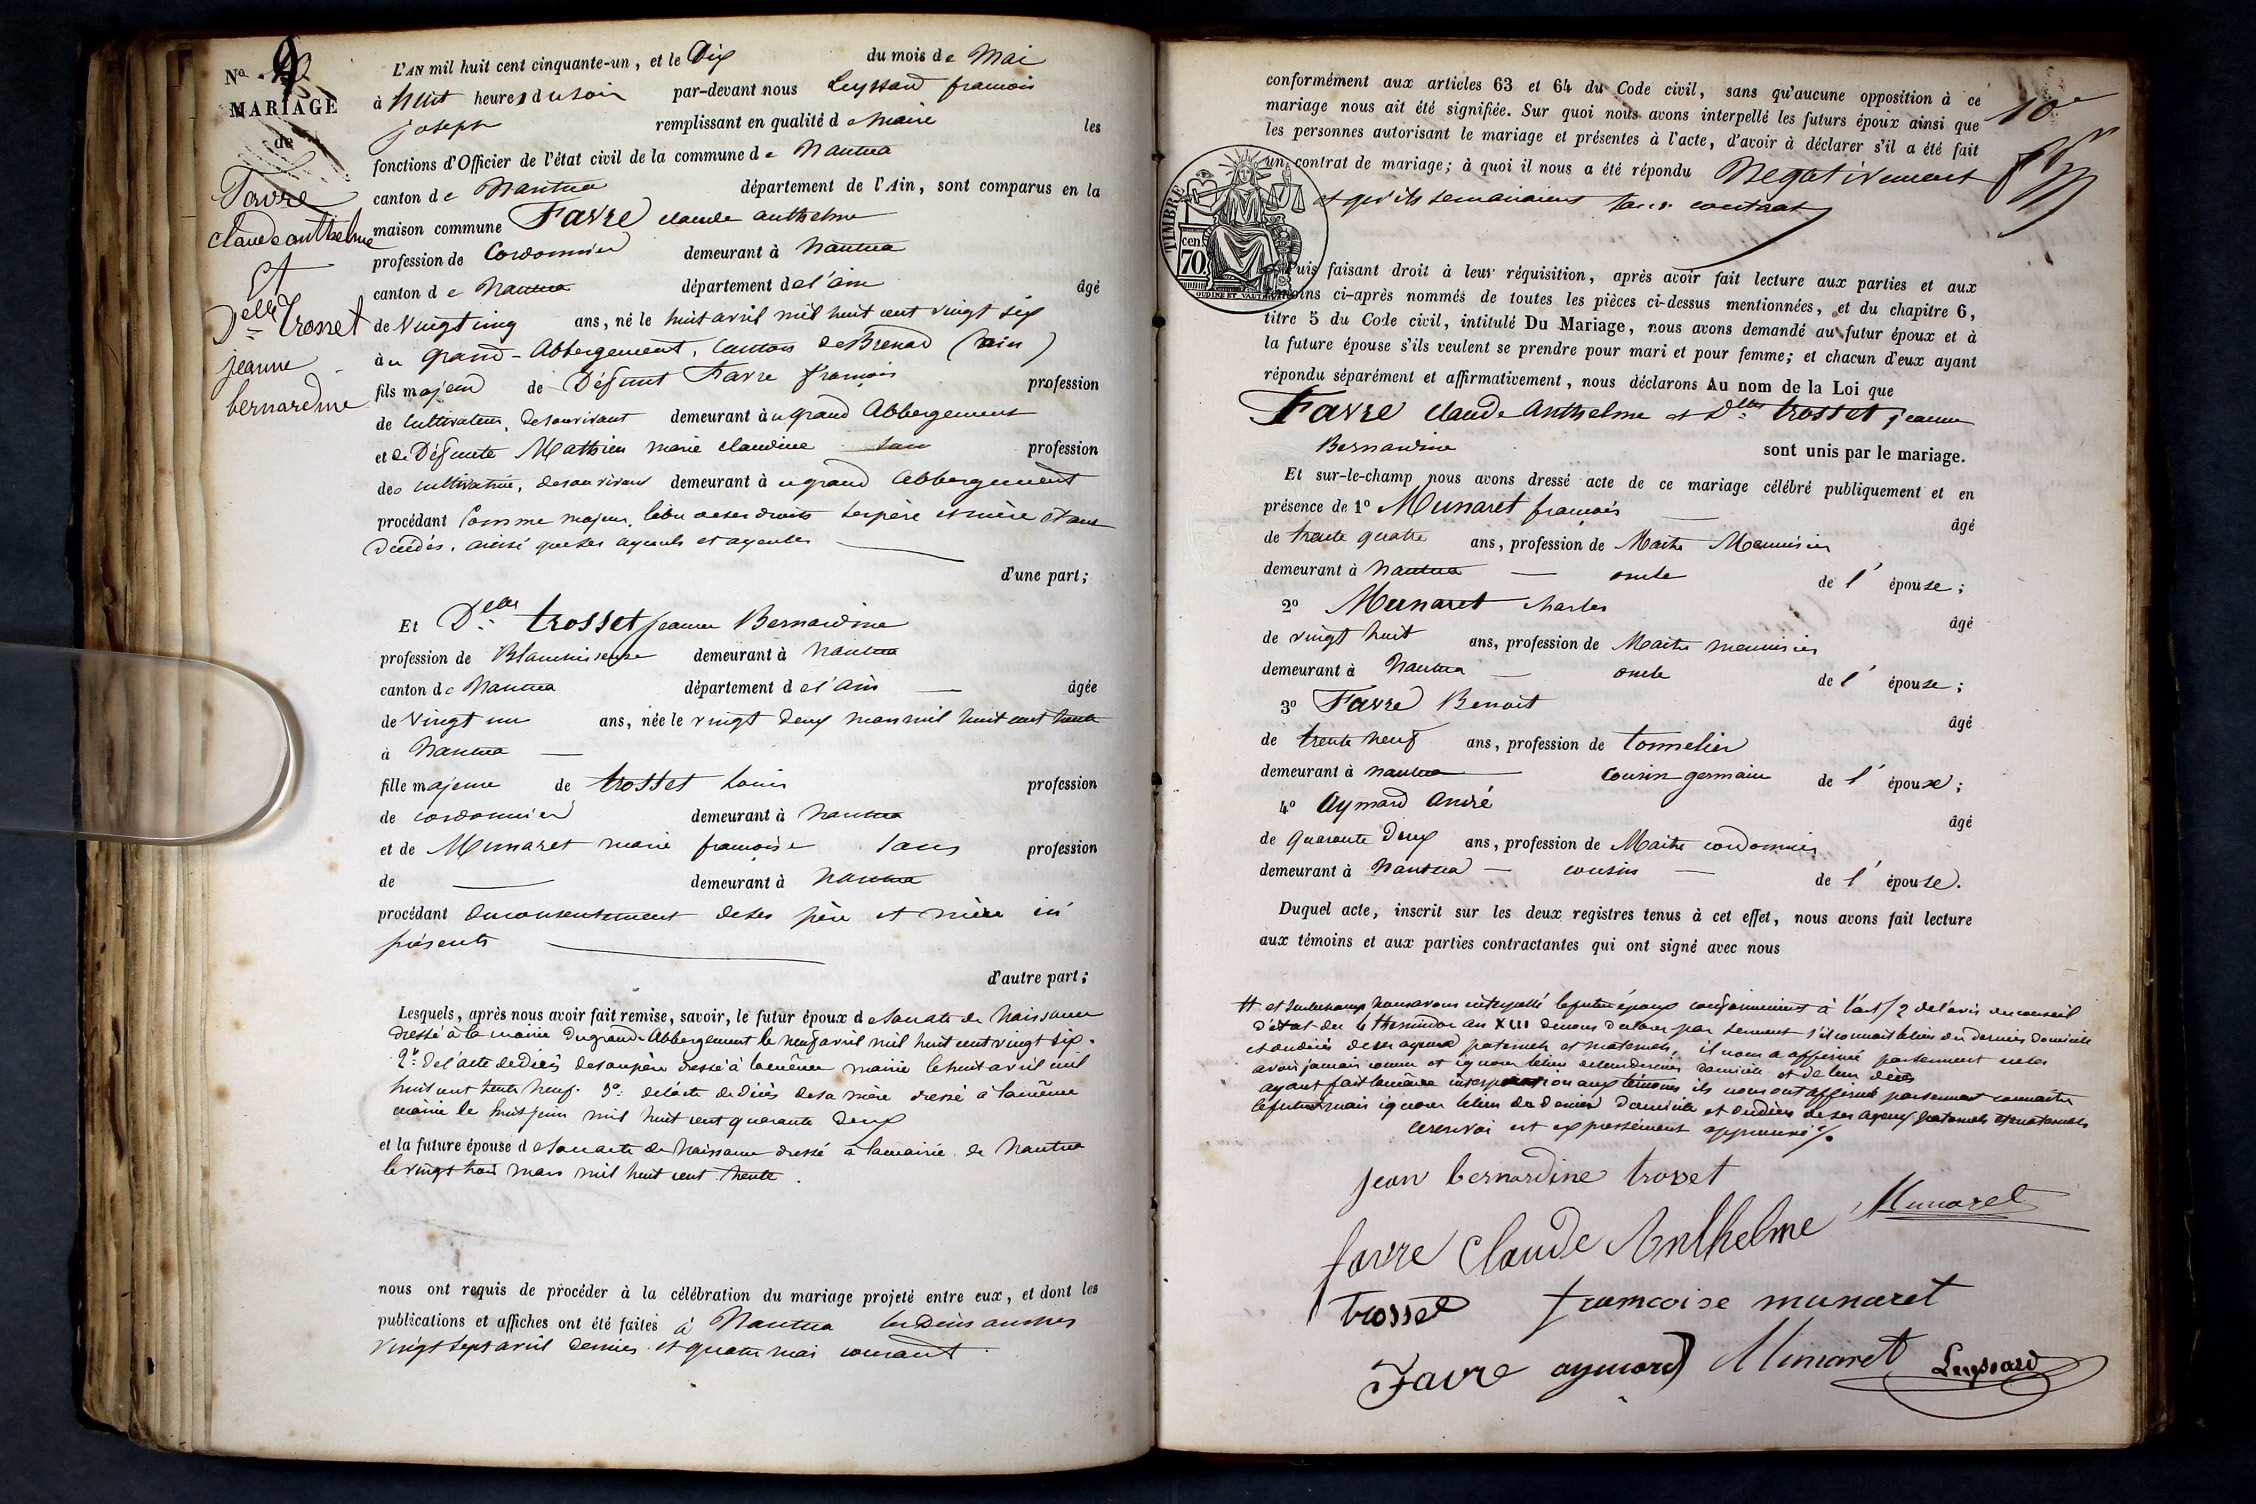 No. 9
MARIAGE
de
Favre
claude anthelme
Et
Delle trosset
jeanne
bernardine
L'AN mil huit cent cinquante-un, et le Dix du mois de Mai
à huit heures du soir par-devant nous Leyssard françois
joseph remplissant en qualité de Maire les
fonctions d'Officier de l'état civil de la commune de Nantua
canton de Nantua département de l'Ain, sont comparus en la
maison commune Favre claude anthelme
profession de Cordonnier demeurant à Nantua
canton de Nantua département de l'ain âgé
de Vingt cinq ans, né le huit avril mil huit cent vingt six
au grand-Abbergement, Canton de Brenod (ain)
fils majeur de Défunt Favre françois profession
de cultivateur, de son vivant demeurant au grand Abbergement
et de Défunte Mathieu marie claudine sans profession
de cultivatrice, de son vivant demeurant au grand Abbergement
procédant Comme majeur, libre de ses droits ses père et mère étant
décédés, ainsi que ses ayeuls et ayeules
d'une part;
Et Delle trosset jeanne Bernardine
profession de Blanchisseuse demeurant à Nantua
canton de Nantua département de l'ain âgée
de Vingt un ans, née le vingt deux mars mil huit cent trente
à Nantua
fille majeure de trosset Louis profession
de cordonnier demeurant à Nantua
et de Munaret marie françoise sans profession
de demeurant à Nantua
procédant du consentement de ses père et mère ici
présents
d'autre part;
Lesquels, après nous avoir fait remise, savoir, le futur époux de son acte de Naissance
dressé à la mairie du grand-Abbergement le neuf avril mil huit cent vingt six.
2° de l'acte de décès de son père dressé à la même mairie le huit avril mil
huit cent trente neuf. 3° de l'acte de décès de sa mère dressé à la même
mairie le huit juin mil huit cent quarante deux
et la future épouse de son acte de Naissance dressé à la mairie de Nantua
le vingt trois mars mil huit cent trente.
nous ont requis de procéder à la célébration du mariage projeté entre eux, et dont les
publications et affiches ont été faites à Nantua les Dimanches
vingt sept avril dernier et quatre mai courant.
conformément aux articles 63 et 64 du Code civil, sans qu'aucune opposition à ce
mariage nous ait été signifiée. Sur quoi nous avons interpellé les futurs époux ainsi que
les personnes autorisant le mariage et présentes à l'acte, d'avoir à déclarer s'il a été fait
un contrat de mariage; à quoi il nous a été répondu Négativement
et qu'ils se mariaient sans contrat
10e
TIMBRE
cen.
70
OUDINE ET VAUTHIER
Puis faisant droit à leur réquisition, après avoir fait lecture aux parties et aux
témoins ci-après nommés de toutes les pièces ci-dessus mentionnées, et du chapitre 6,
titre 5 du Code civil, intitulé Du Mariage, nous avons demandé au futur époux et à
la future épouse s'ils veulent se prendre pour mari et pour femme; et chacun d'eux ayant
répondu séparément et affirmativement, nous déclarons Au nom de la Loi que
Favre claude Anthelme et Delle trosset jeanne
Bernardine sont unis par le mariage.
Et sur-le-champ nous avons dressé acte de ce mariage célébré publiquement et en
présence de 1° Munaret françois âgé
de trente quatre ans, profession de Maitre Menuisier
demeurant à Nantua oncle de l'épouse;
2° Munaret charles âgé
de vingt huit ans, profession de Maitre menuisier
demeurant à Nantua oncle de l'épouse;
3° Favre Benoit âgé
de trente neuf ans, profession de tonnelier
demeurant à nantua Cousin germain de l'époux;
4° Aymard André âgé
de quarante deux ans, profession de Maitre cordonnier
demeurant à Nantua cousin de l'épouse.
Duquel acte, inscrit sur les deux registres tenus à cet effet, nous avons fait lecture
aux témoins et aux parties contractantes qui ont signé avec nous
# et sur le champ nous avons interpellé le futur époux conformément à l'art 2 de l'avis du conseil
d'état du 4 thermidor an XIII de nous déclarer par serment s'il connait le lieu du dernier domicile
et du décès de ses ayeux paternels et maternels, il nous a affirmé par serment ne les
avoir jamais connu et ignorer le lieu de leur dernier domicile et de leur décès
ayant fait la même interpellation aux témoins ils nous ont affirmé par serment connaitre
le futur mais ignorer le lieu du dernier Domicile et du décès de ses ayeux paternels et maternels
ce renvoi est expressément approuvé
jean bernardine trosset
favre Claude Anthelme Munaret
trosset francoise munaret
Favre aymard Munaret Leyssard